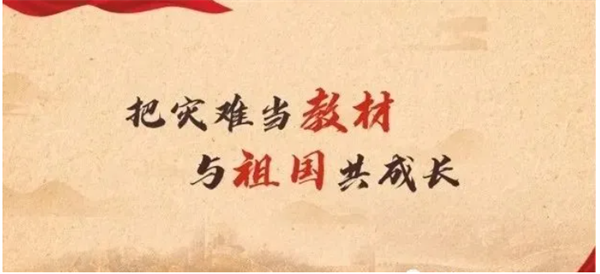 把灾难当教材
与祖国共成长